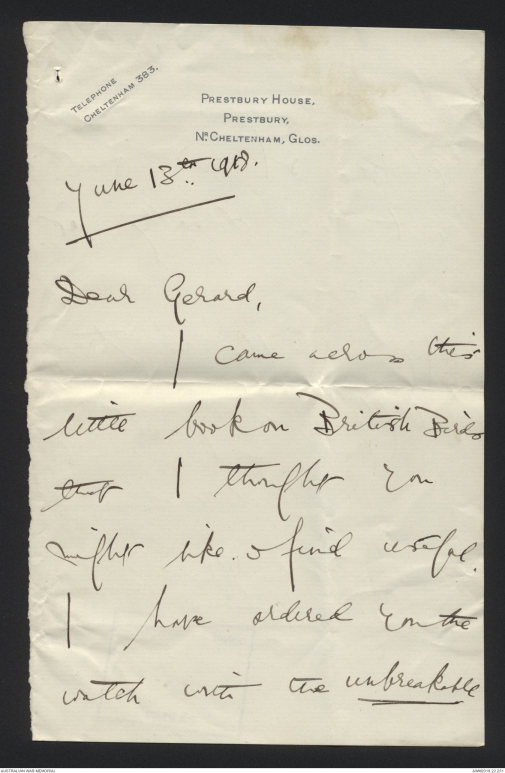 TELEPHONE
CHELTENHAM 383.
PRESTBURY HOUSE,
PRESTBURY,
NR. CHELTENHAM, GLOS.
June 13th. 1918.
Dear Gerard,
I came across this
little book on British Birds
that I thought you
might like & find useful.
I have ordered you the
watch with the unbreakable
AUSTRALIAN WAR MEMORIAL